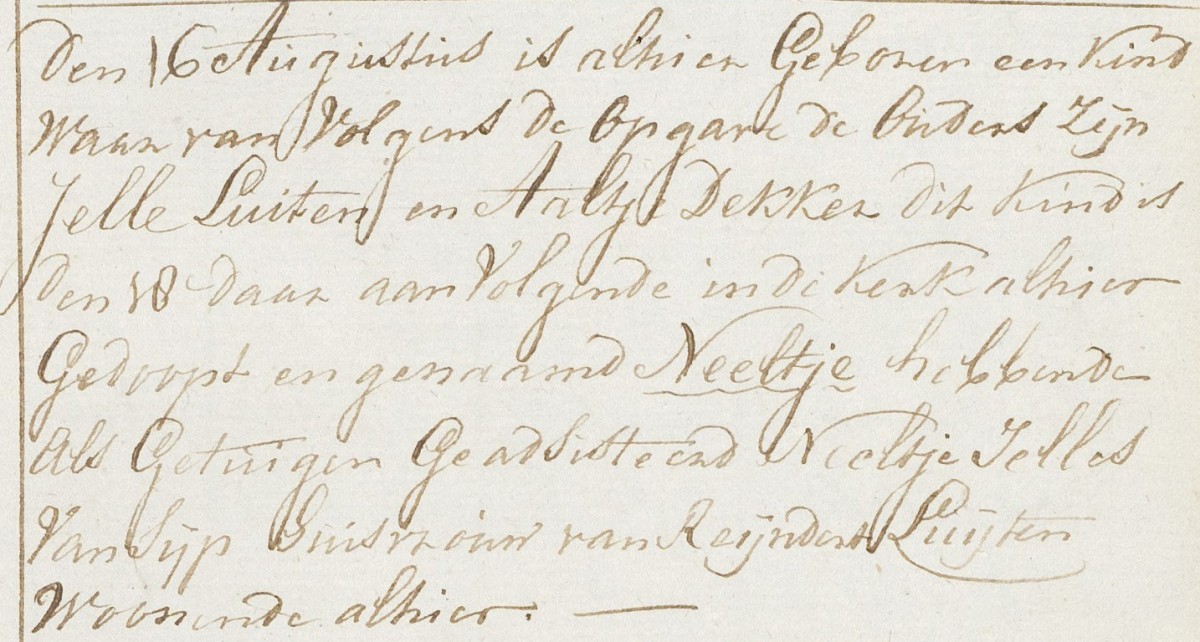 Den 16 Augustus is alhier Geboren een Kind
Waar van Volgens de Opgave de Ouders Zijn
Jelle Luiten en Aaltje Dekker dit Kind is
den 18 daar aan Volgende in de Kerk alhier
Gedoopt en genaamd Neeltje hebbende
als Getuigen Geadsisteerd Neeltje Jelles
Van Sijp Huisvrouw van Reijndert Luijten
Woonende alhier. —